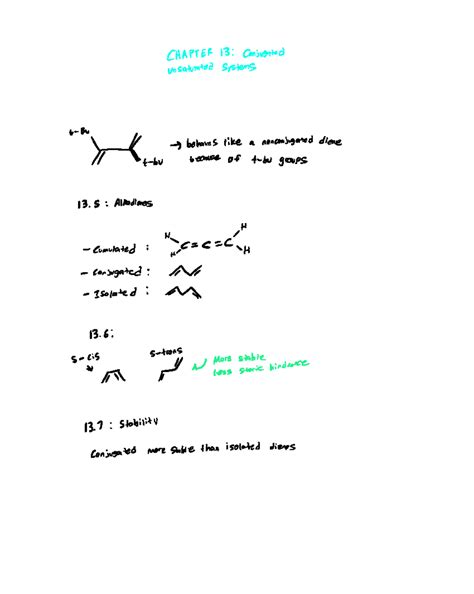 CHAPTER 13: Conjugated
Unsaturated Systems
t-Bu
t-bu
→ behaves like a nonconjugated diene
because of t-bu groups
13.5: Alkadienes
- Cumulated :
H H
C=C=C
H H
- Conjugated :
- Isolated :
13.6:
S-cis
S-trans
More stable
Less steric hindrance
13.7: Stability
Conjugated more stable than isolated dienes